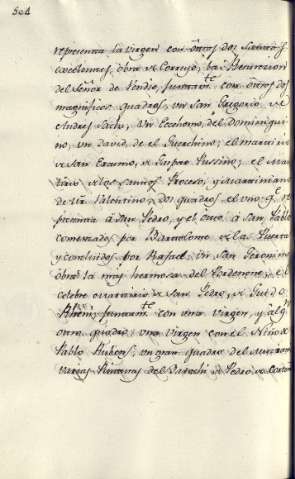 504
representa la Virgen con otros dos
excelentes, obra de Corregio, la Benedicion
del Señor de Ticiano, juntam.te con otros dos
magnificos quadros, un San Gregorio de
Andres Sachi, Un Ecce homo, del Dominiqui
no, un David de el Guerchino; el martirio
de San Erasmo, de Pussino; el Mar
tirio de los Santos Proceso, y Martiniano
de Valentino, dos quadros el uno q.e re
presenta á San Pedro, y el otro á San Pablo
comenzados por Bartolome de la Puerta
y concluidos por Rafael; un San Geronimo
obra la mas hermosa del Pordenone; el
celebre de San Pedro, de Guido
Rheni, juntam.te con una Virgen, y alg.n
otro quadro; una Virgen con el Niño de
Pablo Rubens; un gran quadro del
varias Pinturas del de Pedro de Cortona